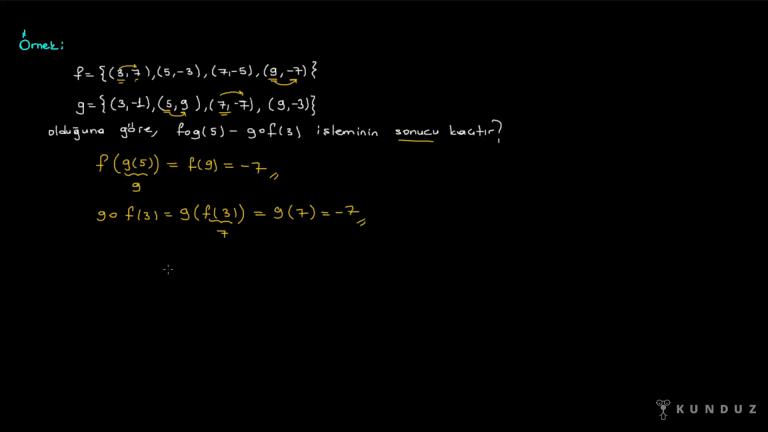 Örnek:
f={(3,7),(5,-3),(7,-5),(9,-7)}
g={(3,-1),(5,9),(7,-7),(9,-3)}
olduğuna göre, fog(5) - gof(3) işleminin sonucu kaçtır?
f(g(5)) = f(9) = -7
9
gof(3) = g(f(3)) = g(7) = -7
7
KUNDUZ